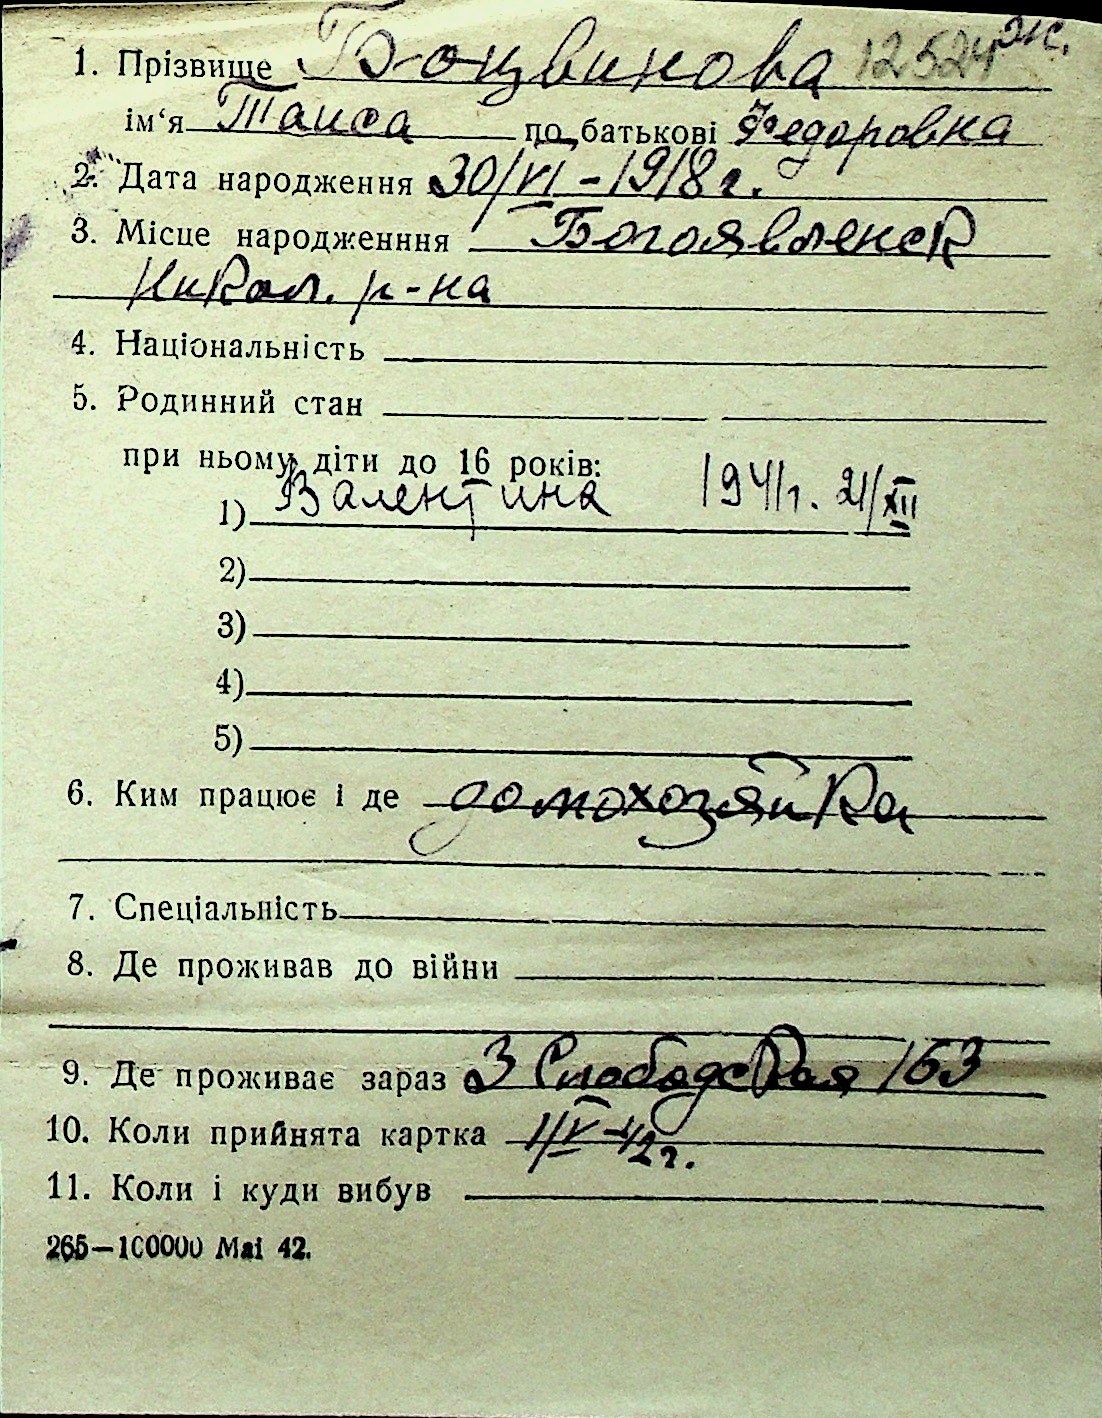 1. Прізвище Боцвинова 12524 эк.
ім‘я Таиса по батькові Федоровна
2. Дата народження 30/VI - 1918 г.
3. Місце народженння Богоявленск
Никол. р-на
4. Національність
5. Родинний стан
при ньому діти до 16 років:
1) Валентина 1941 г. 21/XII
2)
3)
4)
5)
6. Ким працює і де домохозяйка
7. Спеціальність
8. Де проживав до війни
9. Де проживає зараз 3 Слободская 163
10. Коли прийнята картка 1/V-42 г.
11. Коли і куди вибув
265—100000 Mai 42.